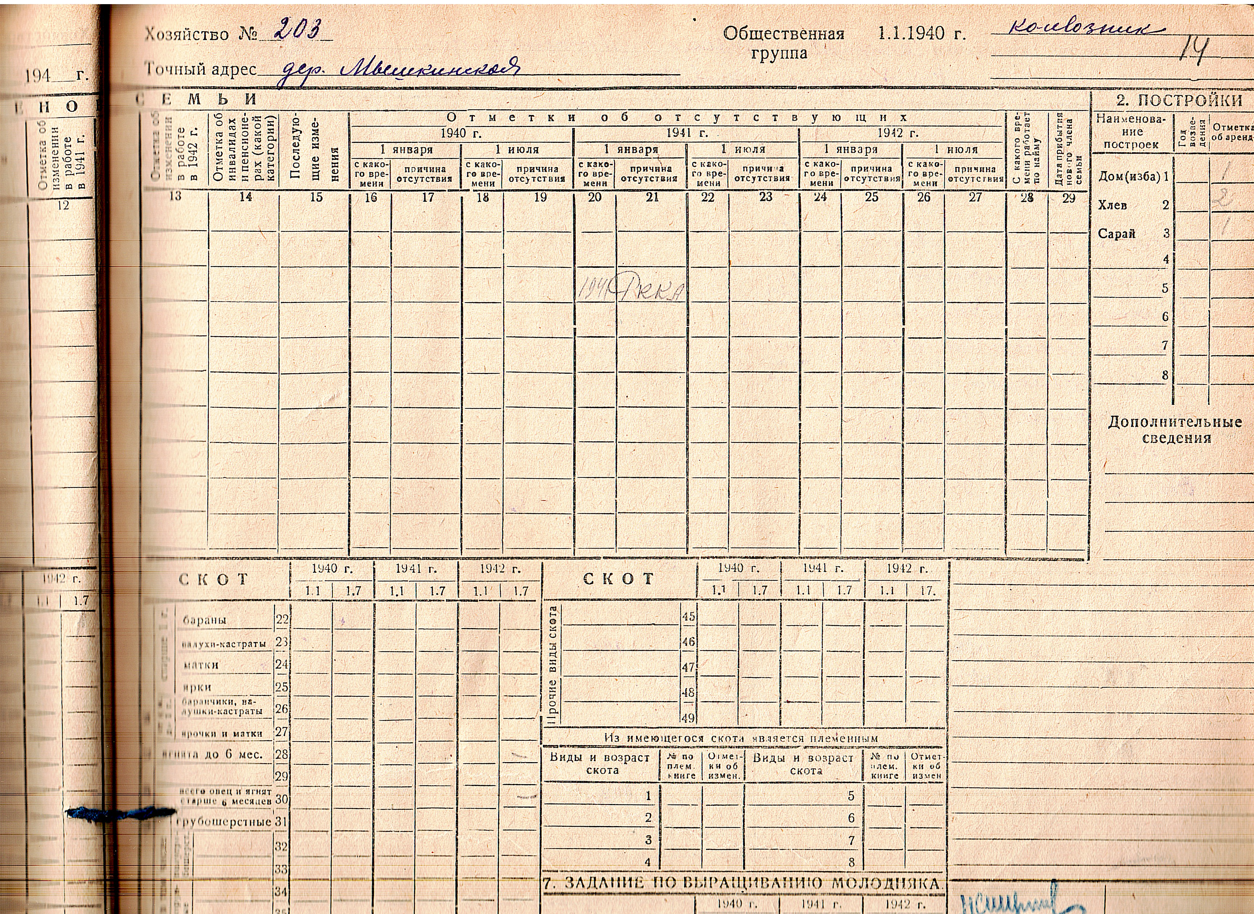 Хозяйство № 203
Общественная группа
1.1.1940 г. колхозник
14
Точный адрес дер. Мышкинской
194 г.
Е Н О
С Е М Ь И
Отметка об изменении в работе в 1941 г.
12
Отметка об изменении в работе в 1942 г.
Отметка об инвалидах и пенсионерах (какой категории)
Последующие изменения
Отметки об отсутствующих
1940 г. 1941 г. 1942 г.
1 января 1 июля 1 января 1 июля 1 января 1 июля
с какого времени причина отсутствия с какого времени причина отсутствия с какого времени причина отсутствия с какого времени причина отсутствия с какого времени причина отсутствия с какого времени причина отсутствия
С какого времени работает по найму
Дата прибытия нового члена семьи
13 14 15 16 17 18 19 20 21 22 23 24 25 26 27 28 29
РККА
2. ПОСТРОЙКИ
Наименование построек
Год возведения
Отметка об аренд
Дом(изба) 1 1
Хлев 2 2
Сарай 3 1
4
5
6
7
8
Дополнительные сведения
1942 г.
1.1 1.7
СКОТ
1940 г. 1941 г. 1942 г.
1.1 1.7 1.1 1.7 1.1 1.7
старше 1 г.
бараны 22
валухи-кастраты 23
матки 24
ярки 25
баранчики, валушки-кастраты 26
ярочки и матки 27
ягнята до 6 мес. 28
29
всего овец и ягнят старше 6 месяцев 30
грубошерстные 31
32
33
34
СКОТ
1940 г. 1941 г. 1942 г.
1.1 1.7 1.1 1.7 1.1 17.
Прочие виды скота
45
46
47
48
49
Из имеющегося скота является племенным
Виды и возраст скота № по плем. книге Отметки об измен. Виды и возраст скота № по плем. книге Отметки об измен
1 5
2 6
3 7
4 8
7. ЗАДАНИЕ ПО ВЫРАЩИВАНИЮ МОЛОДНЯКА.
1940 г. 1941 г. 1942 г.